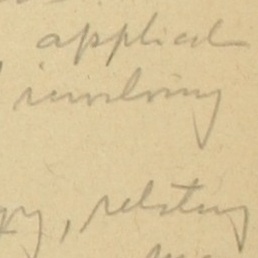 applied
involving
gy, relating